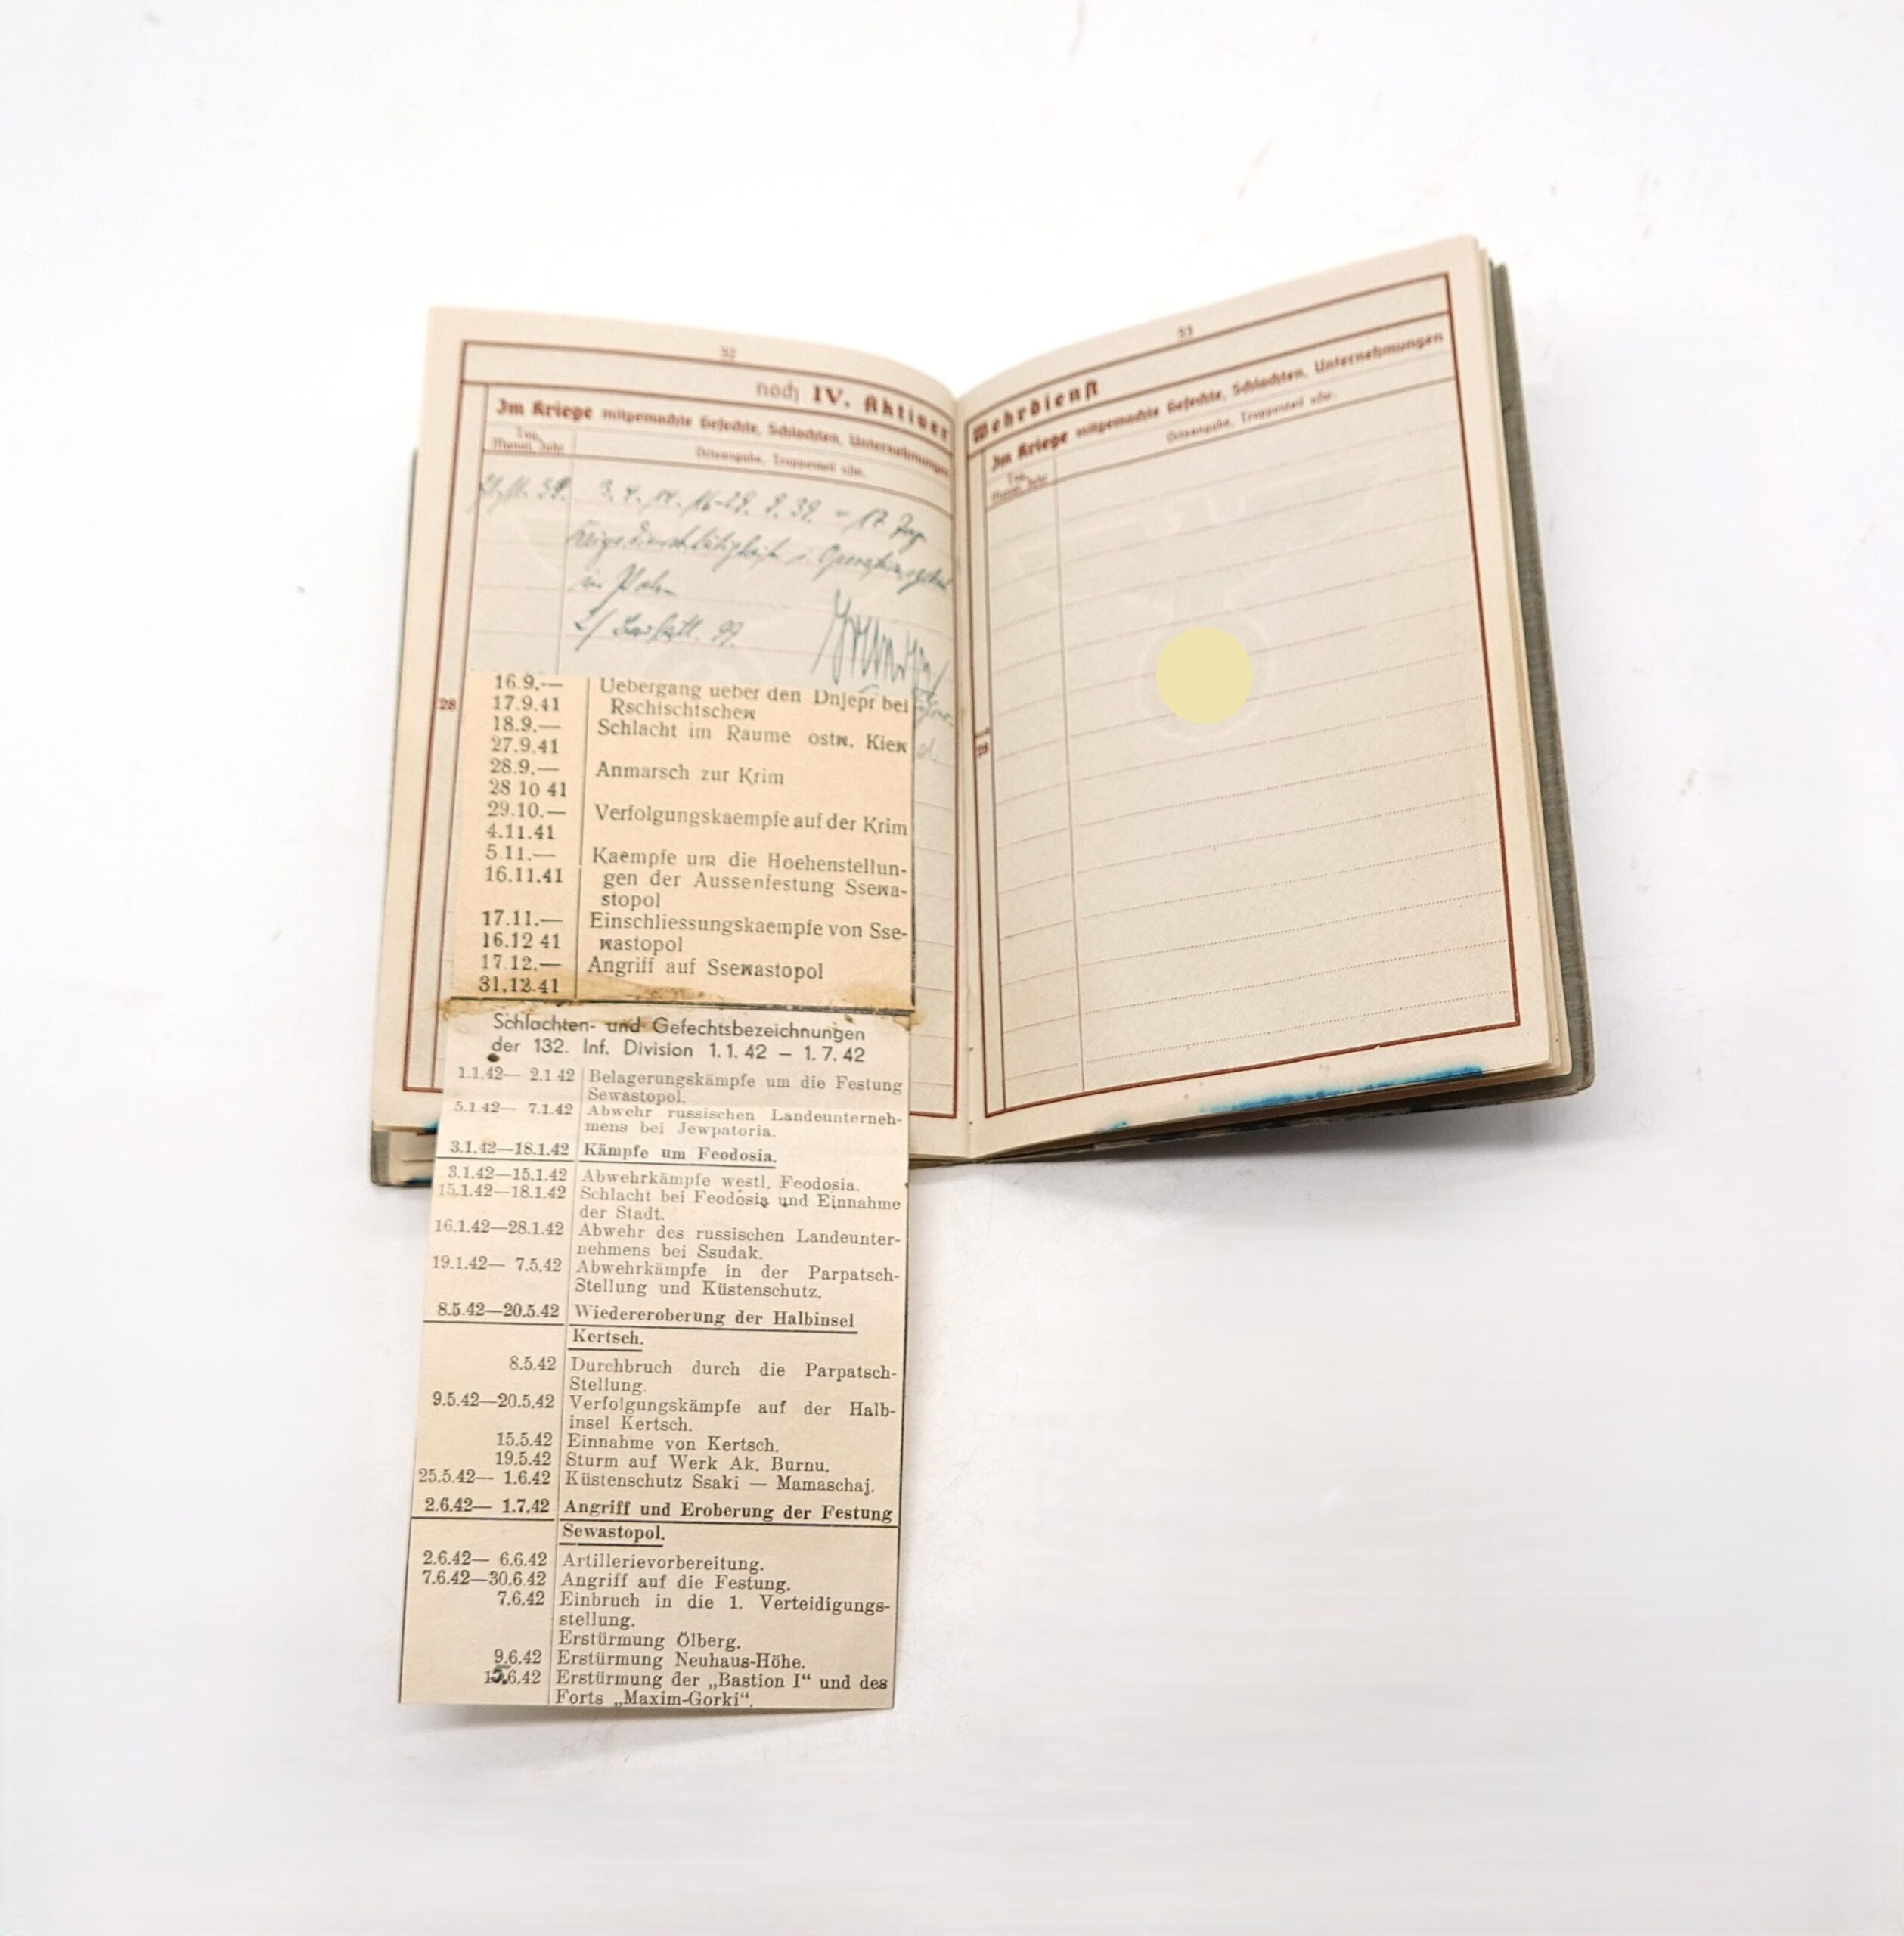 32
noch IV. Aktiver
Im Kriege mitgemachte Gefechte, Schlachten, Unternehmungen
Tag, Monat, Jahr
Ortsangabe, Truppenteil usw.
3. 4. 14. 16-29. 9. 39. = 17
in Polen
28
16.9.— Uebergang ueber den Dnjepr bei
17.9.41 Rschischtschew
18.9.— Schlacht im Raume ostw. Kiew
27.9.41
28.9.— Anmarsch zur Krim
28 10 41
29.10.— Verfolgungskaempfe auf der Krim
4.11.41
5.11.— Kaempfe um die Hoehenstellun-
16.11.41 gen der Aussenfestung Ssewa-
stopol
17.11.— Einschliessungskaempfe von Sse-
16.12 41 wastopol
17.12.— Angriff auf Ssewastopol
31.12.41
Schlachten- und Gefechtsbezeichnungen
der 132. Inf. Division 1.1.42 – 1.7.42
1.1.42— 2.1.42 Belagerungskämpfe um die Festung
Sewastopol.
5.1.42— 7.1.42 Abwehr russischen Landeunterneh-
mens bei Jewpatoria.
3.1.42—18.1.42 Kämpfe um Feodosia.
3.1.42—15.1.42 Abwehrkämpfe westl. Feodosia.
15.1.42—18.1.42 Schlacht bei Feodosia und Einnahme
der Stadt.
16.1.42—28.1.42 Abwehr des russischen Landeunter-
nehmens bei Ssudak.
19.1.42— 7.5.42 Abwehrkämpfe in der Parpatsch-
Stellung und Küstenschutz.
8.5.42—20.5.42 Wiedereroberung der Halbinsel
Kertsch.
8.5.42 Durchbruch durch die Parpatsch-
Stellung.
9.5.42—20.5.42 Verfolgungskämpfe auf der Halb-
insel Kertsch.
15.5.42 Einnahme von Kertsch.
19.5.42 Sturm auf Werk Ak. Burnu.
25.5.42— 1.6.42 Küstenschutz Ssaki — Mamaschaj.
2.6.42— 1.7.42 Angriff und Eroberung der Festung
Sewastopol.
2.6.42— 6.6.42 Artillerievorbereitung.
7.6.42—30.6.42 Angriff auf die Festung.
7.6.42 Einbruch in die 1. Verteidigungs-
stellung.
Erstürmung Ölberg.
9.6.42 Erstürmung Neuhaus-Höhe.
15.6.42 Erstürmung der „Bastion I“ und des
Forts „Maxim-Gorki“.
33
Wehrdienst
Im Kriege mitgemachte Gefechte, Schlachten, Unternehmungen
Tag, Monat, Jahr
Ortsangabe, Truppenteil usw.
28